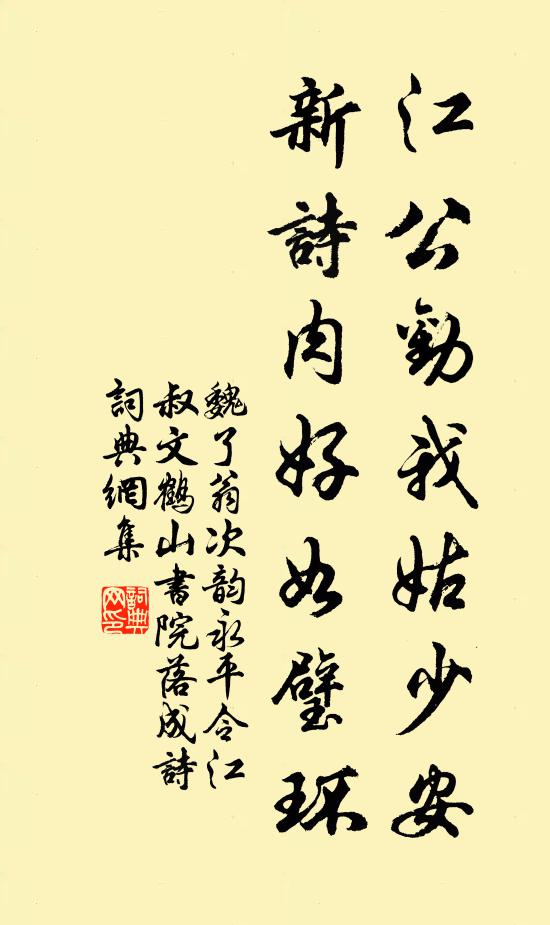 江公勸我姑少安
新詩肉好如璧环
魏了翁次韵永平令江
叔文鶴山書院落成詩
詞典網集
詞典
网印